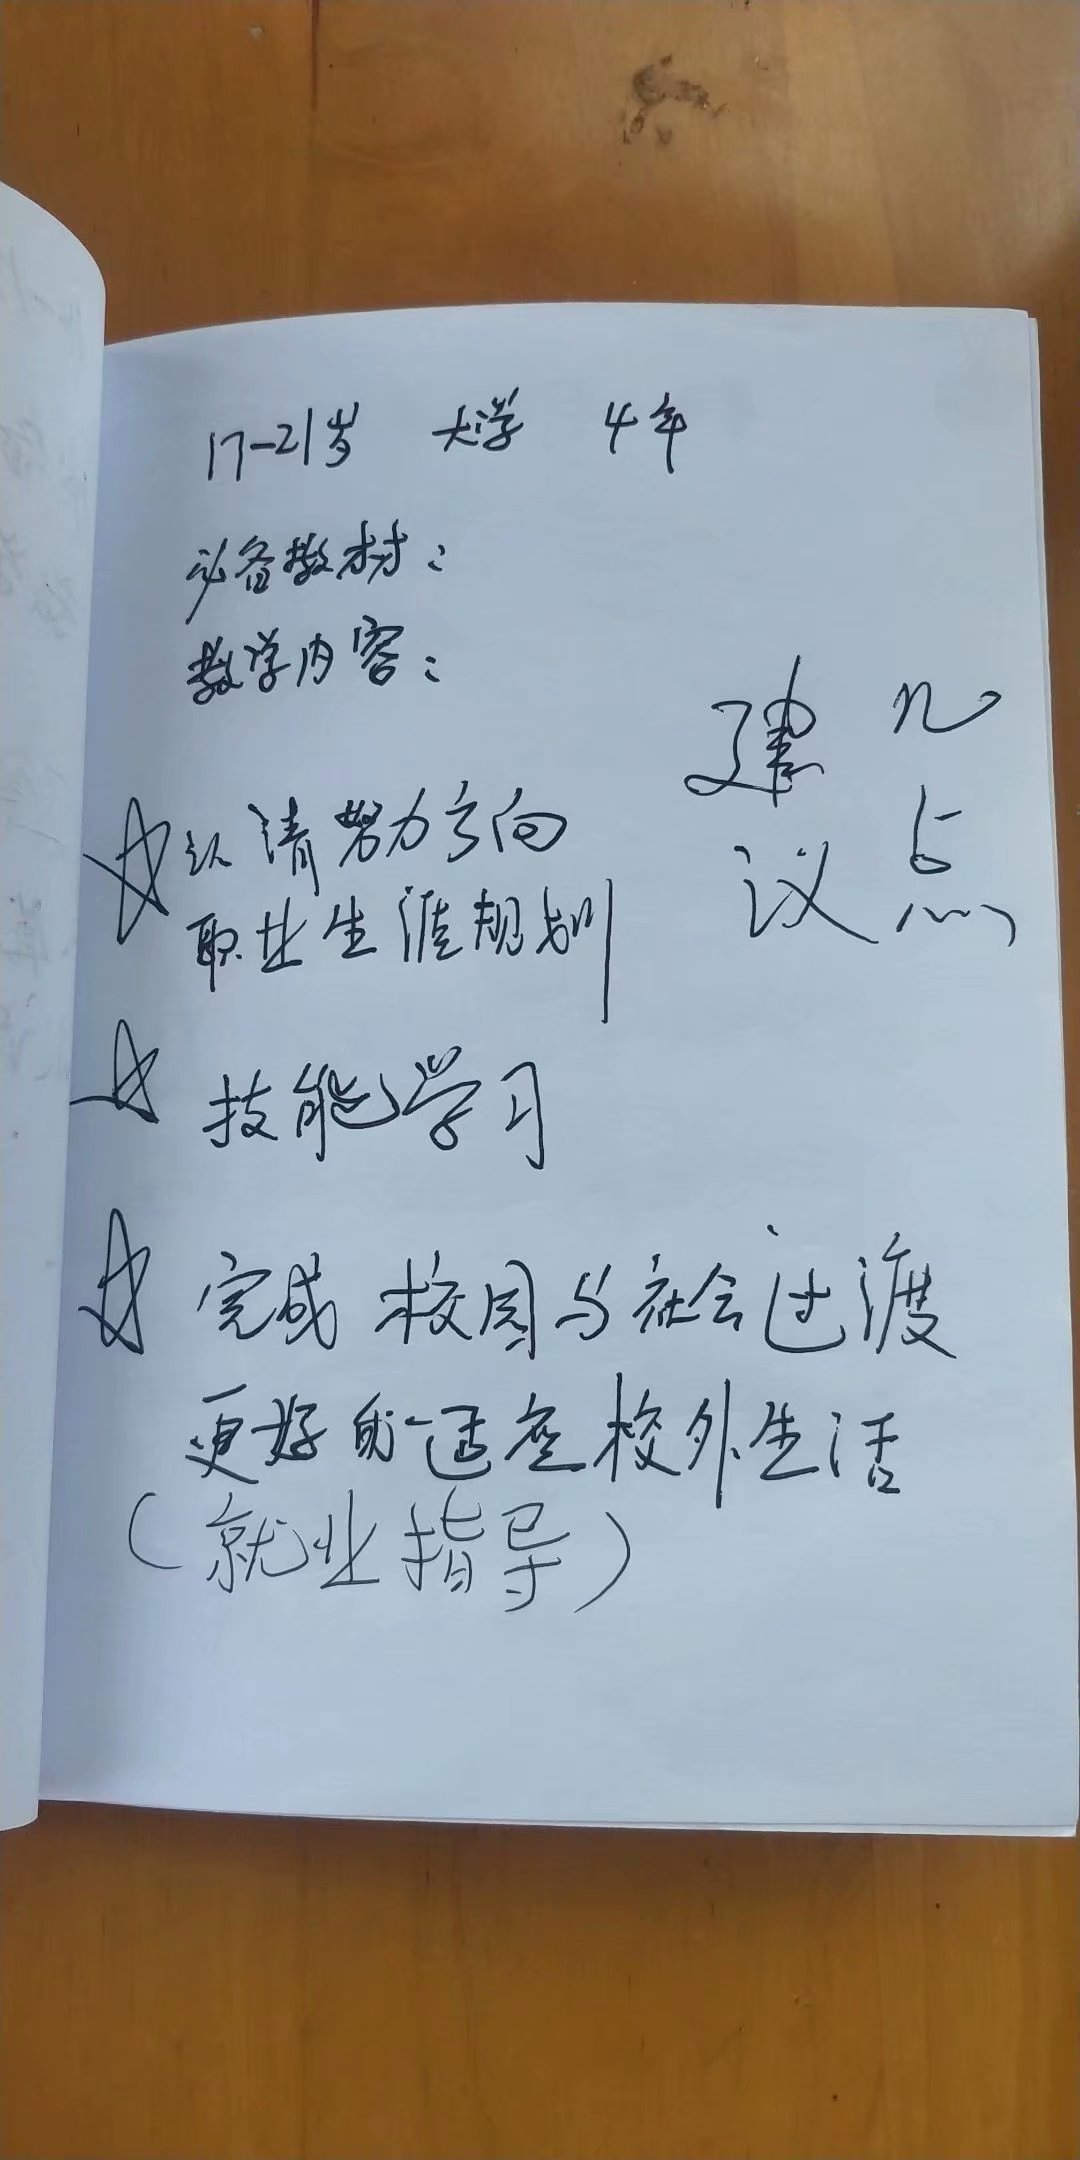 17-21岁 大学 4年
必备教材：
教学内容：
几点
建议
☆认清努力方向
职业生涯规划
☆技能学习
☆完成校园与社会过渡
更好的适应校外生活
（就业指导）